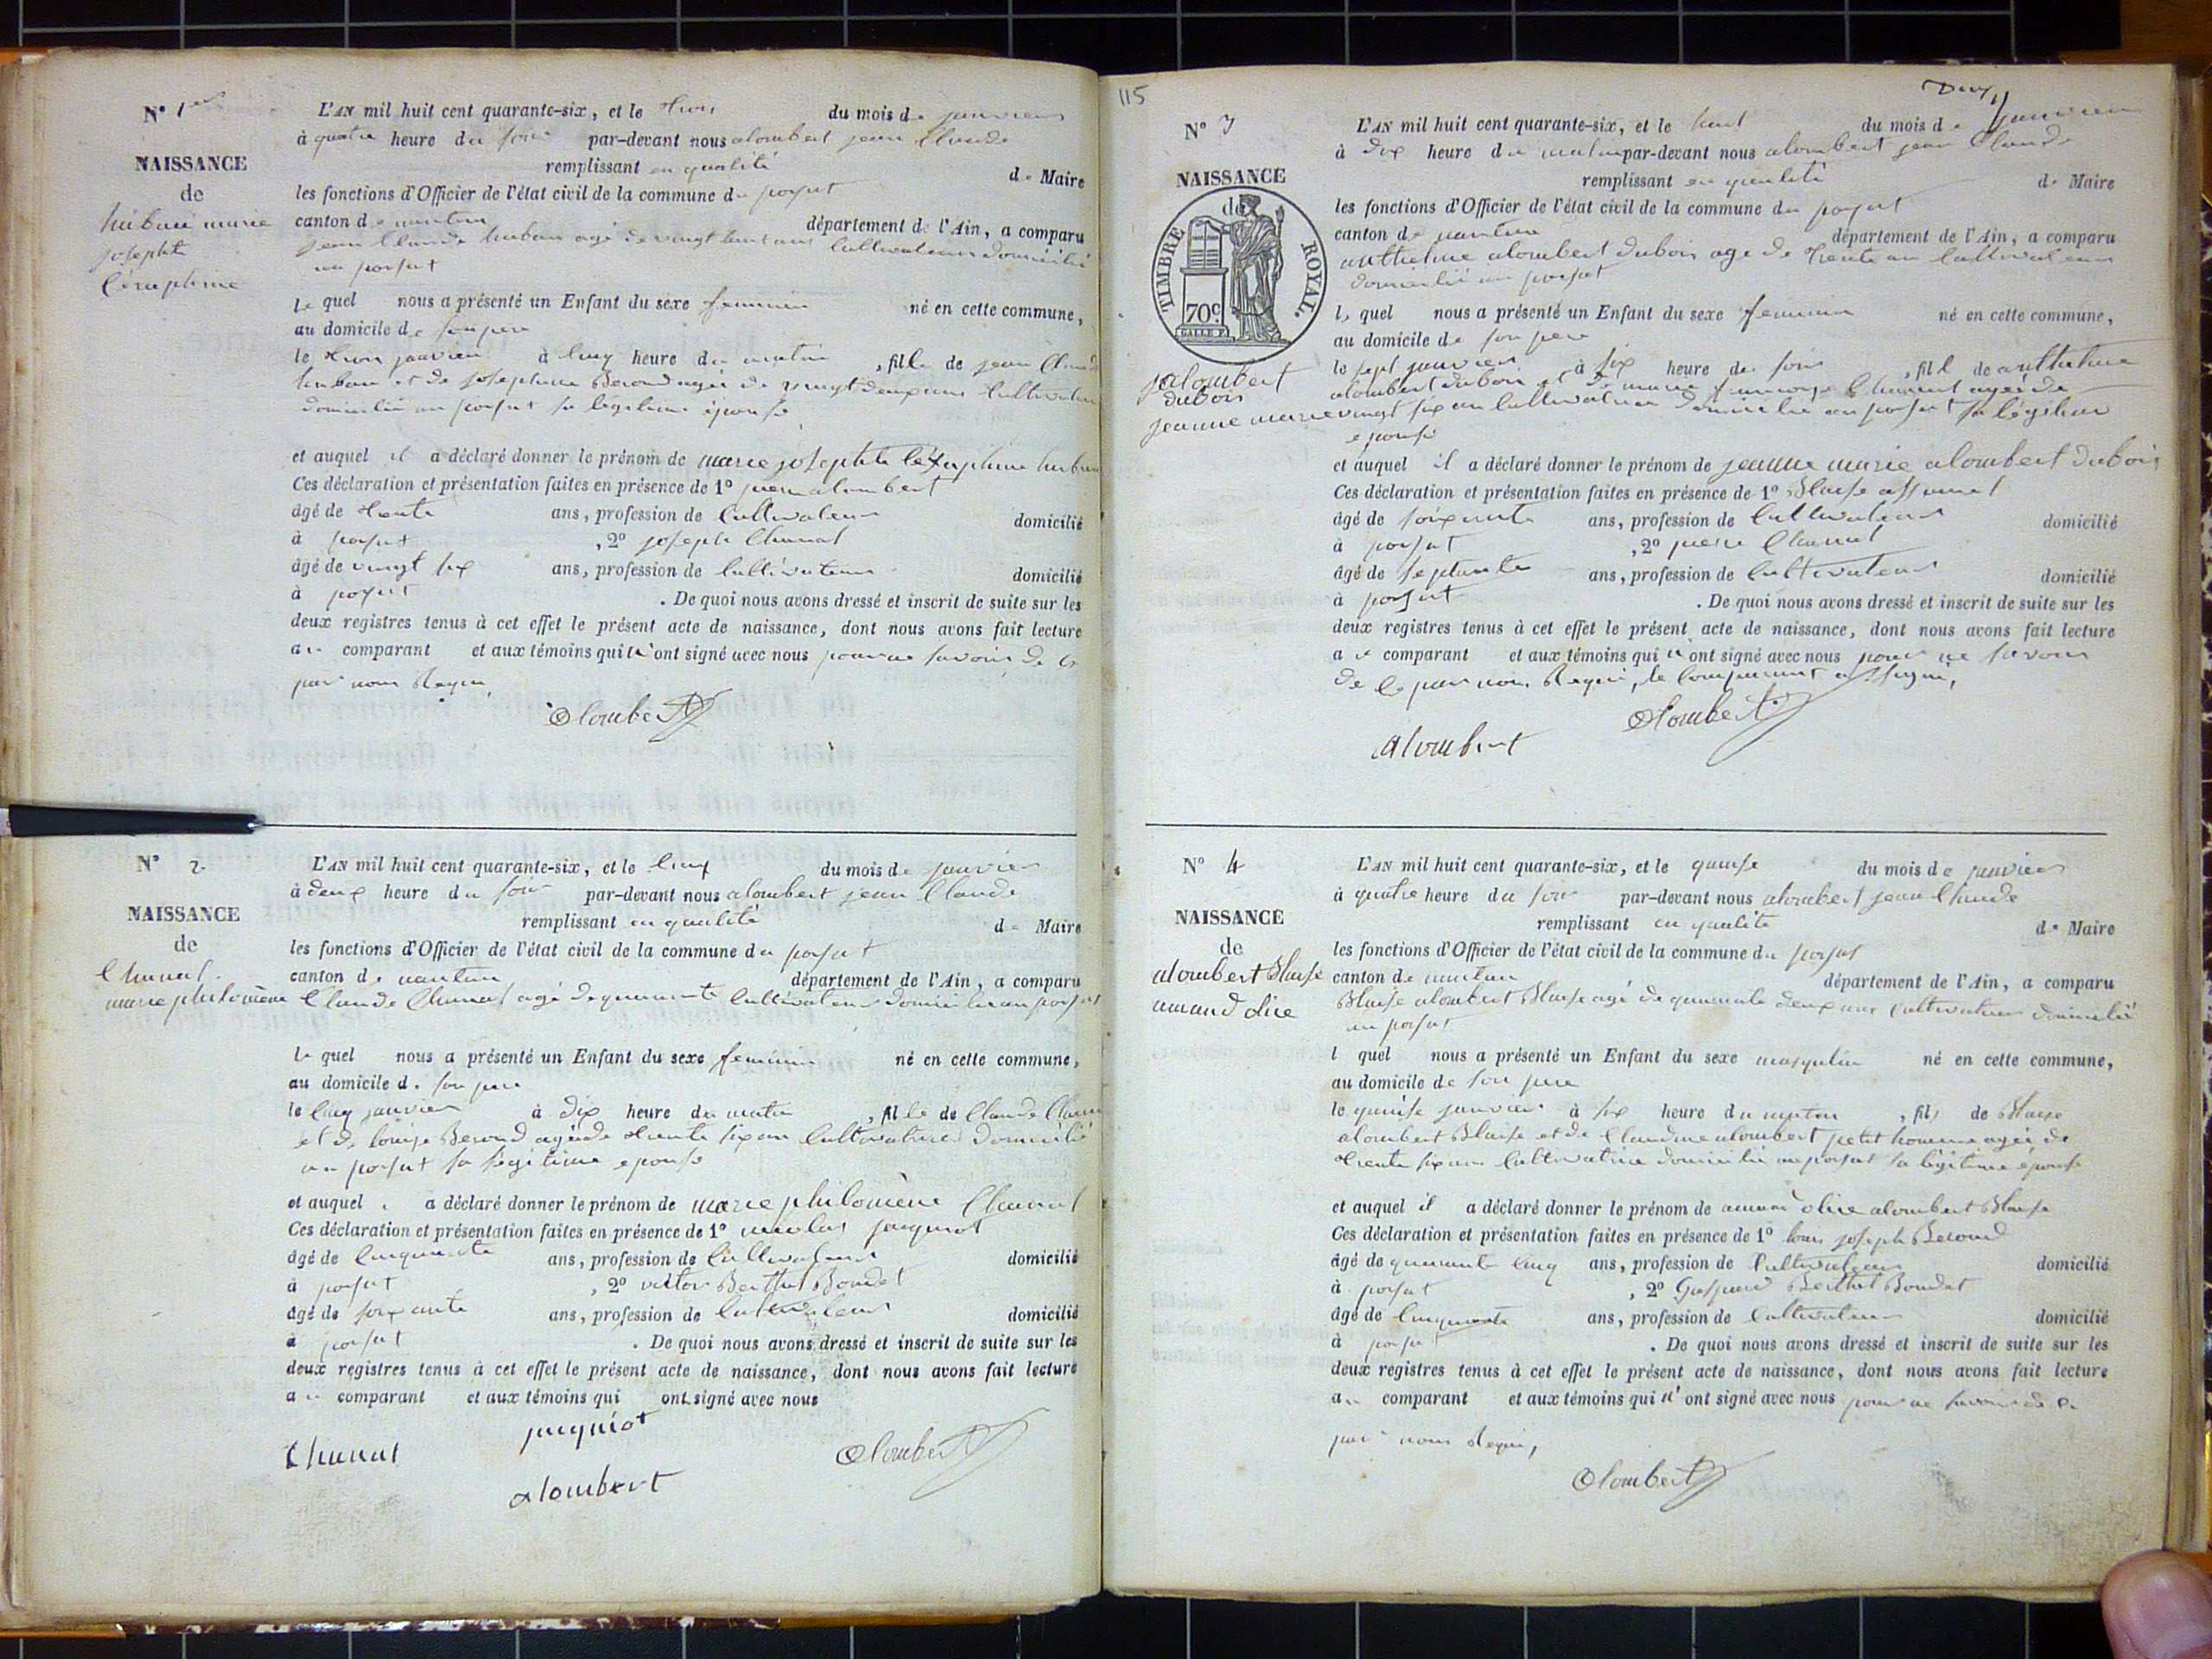 N° 1er
NAISSANCE
de
marie
josephte
L'AN mil huit cent quarante-six, et le trois du mois de janvier
à quatre heure du soir par-devant nous alombert jean Claude
remplissant en qualité de Maire
les fonctions d'Officier de l'état civil de la commune du
canton de nantua département de l'Ain, a comparu
jean Claude agé de vingt ans Cultivateur domicilié
au
le quel nous a présenté un Enfant du sexe feminin né en cette commune,
au domicile de son pere
le trois janvier à cinq heure du matin, fille de jean Claude
et de josephine Berod agée de vingt deux ans Cultivatrice
domicilié au sa legitime épouse
et auquel il a déclaré donner le prénom de marie josephte
Ces déclaration et présentation faites en présence de 1° alombert
âgé de trente ans, profession de Cultivateur domicilié
à , 2° joseph Chanal
âgé de vingt six ans, profession de Cultivateur domicilié
à . De quoi nous avons dressé et inscrit de suite sur les
deux registres tenus à cet effet le présent acte de naissance, dont nous avons fait lecture
au comparant et aux témoins qui n'ont signé avec nous pour ne savoir de ce
par nous Requi
Alombert
N° 2
NAISSANCE
de
Chanal
marie philomène
L'AN mil huit cent quarante-six, et le cinq du mois de janvier
à deux heure du soir par-devant nous alombert jean Claude
remplissant en qualité de Maire
les fonctions d'Officier de l'état civil de la commune du
canton de nantua département de l'Ain, a comparu
Claude Chanal agé de quarante Cultivateur domicilié au
le quel nous a présenté un Enfant du sexe feminin né en cette commune,
au domicile de son pere
le cinq janvier à dix heure du matin, fille de Claude Chanal
et de louise Berod agée de trente six ans Cultivatrice domicilié
au sa legitime epouse
et auquel a déclaré donner le prénom de marie philomène Chanal
Ces déclaration et présentation faites en présence de 1° nicolas jacquiot
âgé de cinquante ans, profession de Cultivateur domicilié
à , 2° victor Berthet Bondet
âgé de soixante ans, profession de Cultivateur domicilié
à . De quoi nous avons dressé et inscrit de suite sur les
deux registres tenus à cet effet le présent acte de naissance, dont nous avons fait lecture
au comparant et aux témoins qui ont signé avec nous
Chanal jacquiot Alombert
alombert
115
Deux
N° 3
NAISSANCE
de
TIMBRE ROYAL.
70c
alombert
dubois
jeanne marie
L'AN mil huit cent quarante-six, et le huit du mois de janvier
à dix heure du matin par-devant nous alombert jean Claude
remplissant en qualité de Maire
les fonctions d'Officier de l'état civil de la commune du
canton de nantua département de l'Ain, a comparu
anthelme alombert dubois age de trente an Cultivateur
domicilié au
le quel nous a présenté un Enfant du sexe feminin né en cette commune,
au domicile de son pere
le sept janvier à six heure du soir, fille de anthelme
alombert dubois et de marie Chanal agée de
vingt six an Cultivatrice domicilié au sa légitime
epouse
et auquel il a déclaré donner le prénom de jeanne marie alombert dubois
Ces déclaration et présentation faites en présence de 1° Blaise
âgé de soixante ans, profession de Cultivateur domicilié
à , 2° pierre Chanal
âgé de septante ans, profession de Cultivateur domicilié
à . De quoi nous avons dressé et inscrit de suite sur les
deux registres tenus à cet effet le présent acte de naissance, dont nous avons fait lecture
au comparant et aux témoins qui n'ont signé avec nous pour ne savoir
de ce par nous Requi, le comparant a signé,
Alombert
Alombert
N° 4
NAISSANCE
de
alombert Blaise
L'AN mil huit cent quarante-six, et le quinse du mois de janvier
à quatre heure du soir par-devant nous alombert jean Claude
remplissant en qualité de Maire
les fonctions d'Officier de l'état civil de la commune du
canton de nantua département de l'Ain, a comparu
Blaise alombert Blaise agé de quarante deux ans Cultivateur domicilié
au
l quel nous a présenté un Enfant du sexe masqulin né en cette commune,
au domicile de son pere
le quinse janvier à six heure du matin, fils de Blaise
alombert Blaise et de Claudine alombert petit homme agée de
trente six ans Cultivatrice domicilié au sa légitime épouse
et auquel il a déclaré donner le prénom de alombert Blaise
Ces déclaration et présentation faites en présence de 1° louis joseph Berod
âgé de quarante cinq ans, profession de Cultivateur domicilié
à , 2° Gaspard Berthet Bondet
âgé de cinquante ans, profession de Cultivateur domicilié
à . De quoi nous avons dressé et inscrit de suite sur les
deux registres tenus à cet effet le présent acte de naissance, dont nous avons fait lecture
au comparant et aux témoins qui n'ont signé avec nous pour ne savoir de ce
par nous Requi,
Alombert